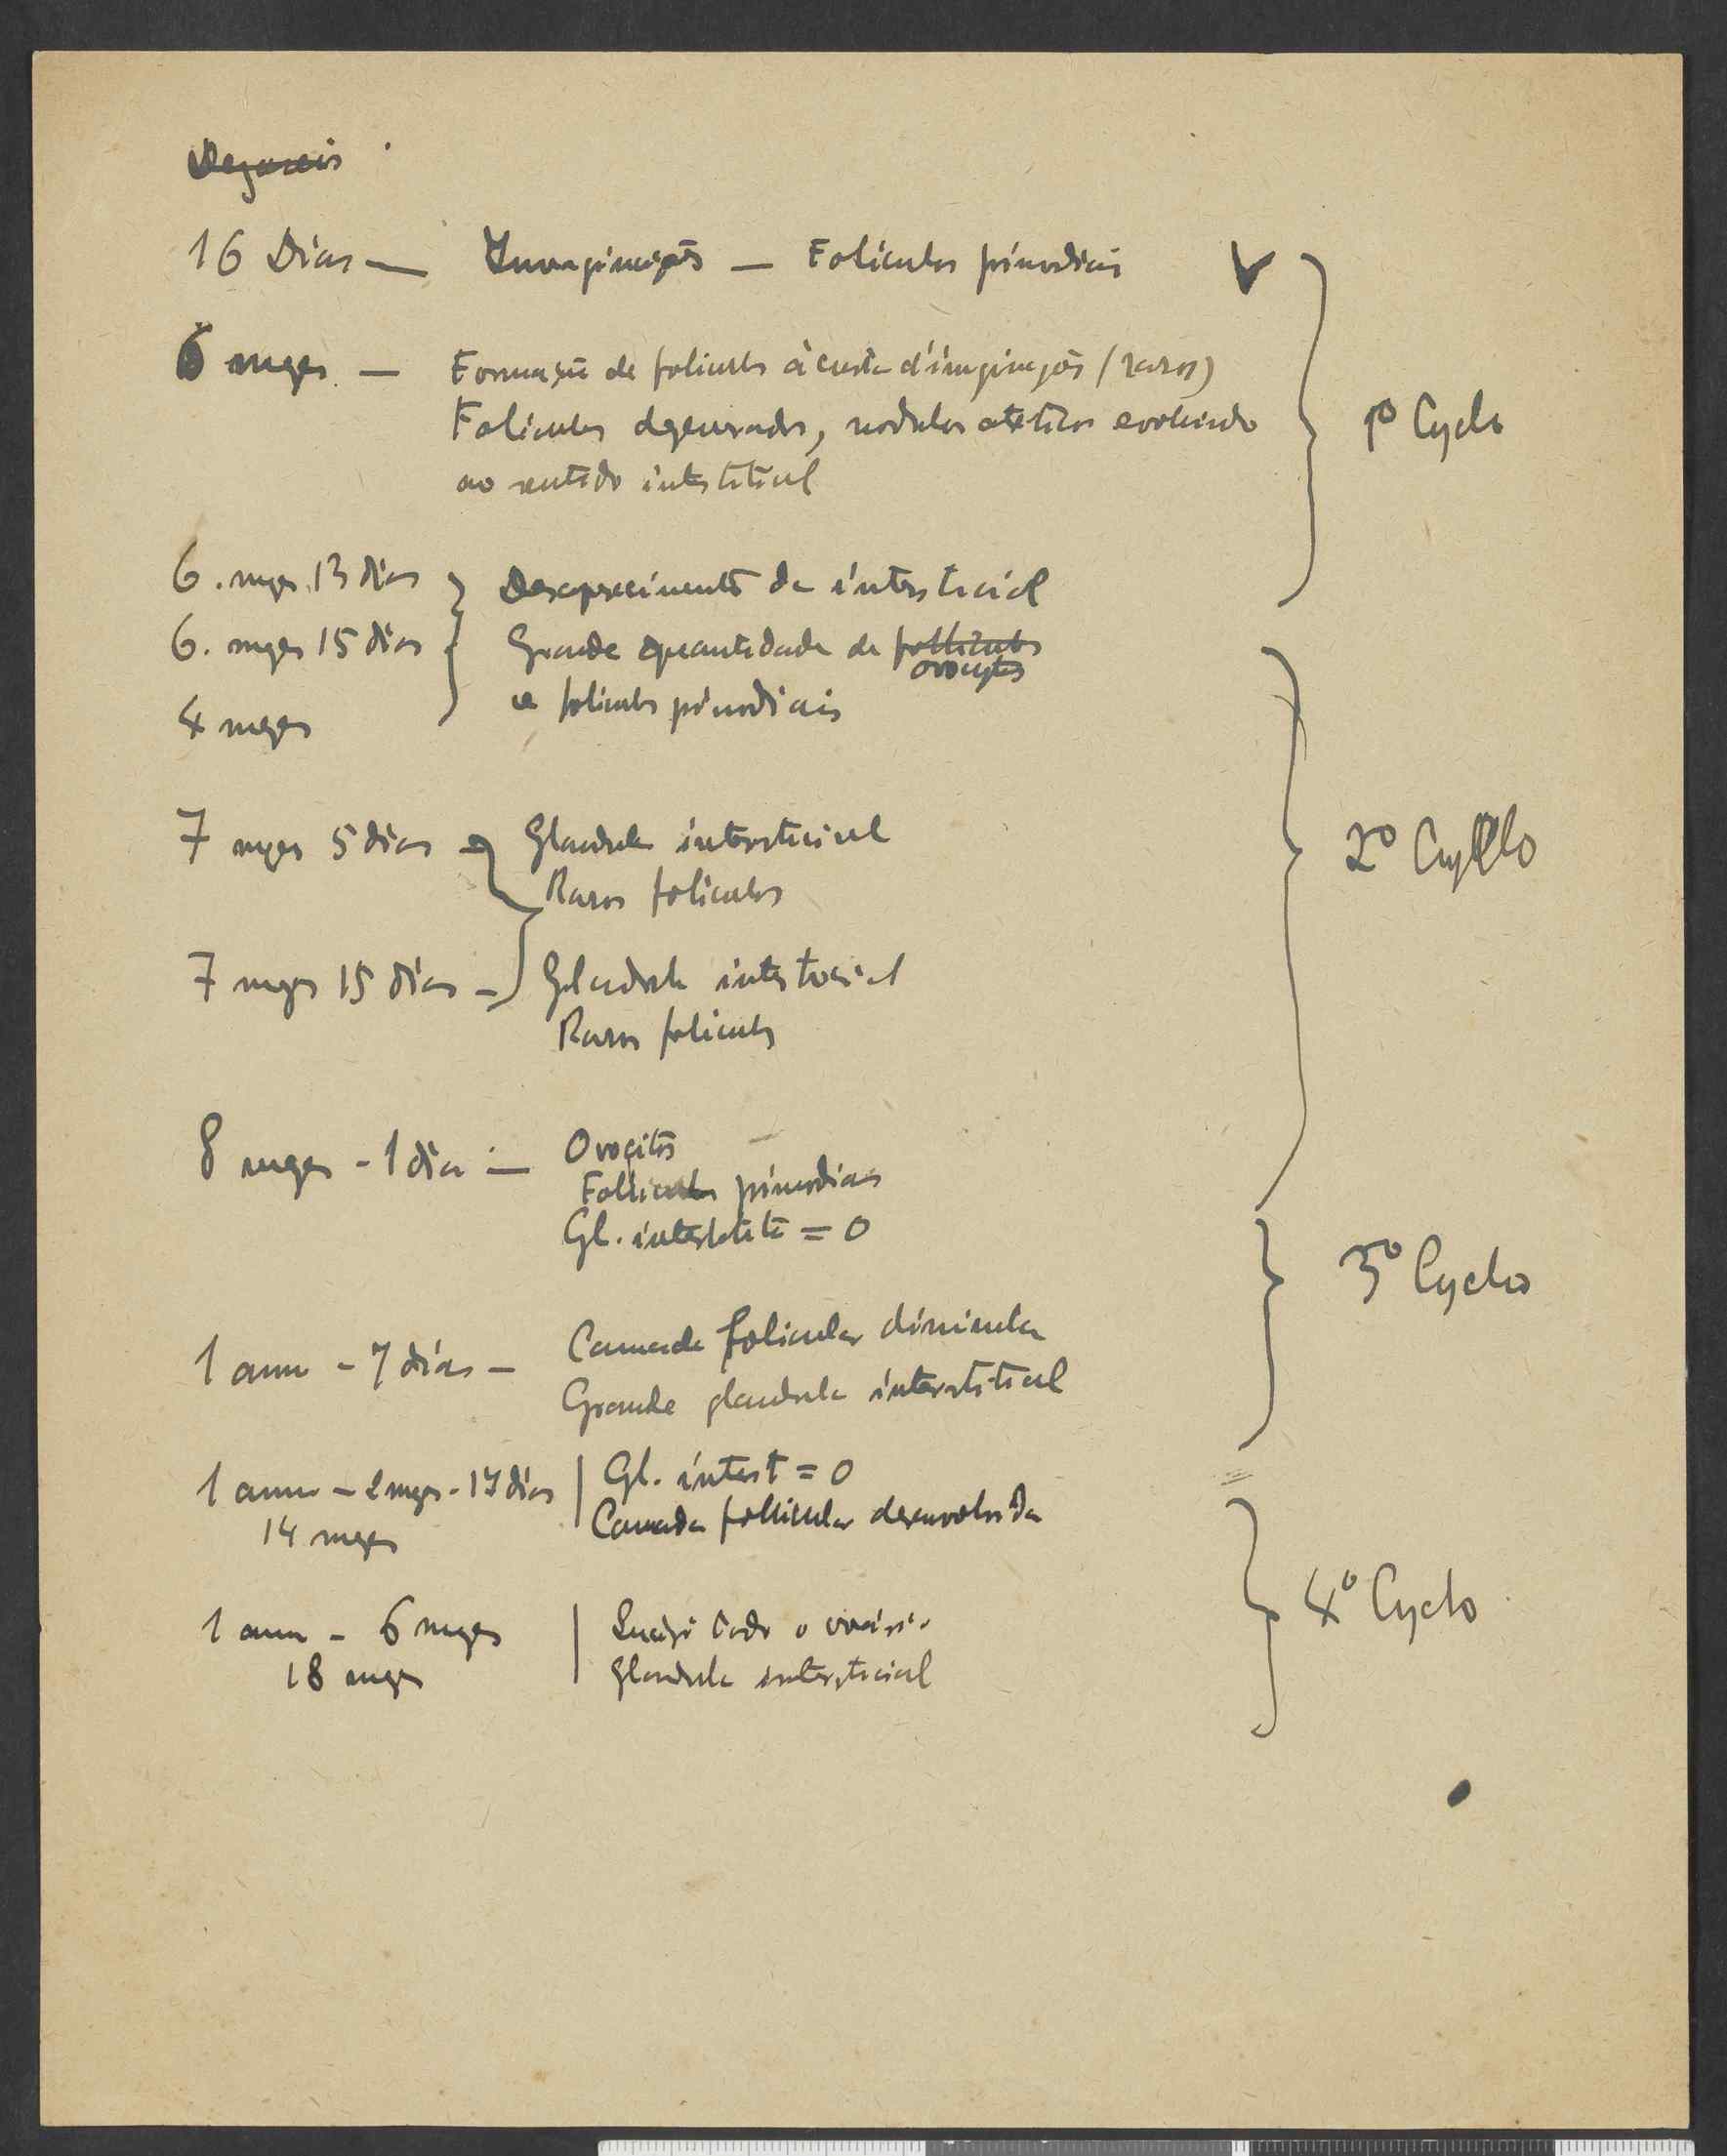 16 Dias — Invaginações — Foliculos primordiais
6 mezes — Formação de foliculos à custa d'impinjções (raros)
Foliculos degenerados, nodulos atreticos evoluindo
no sentido interstitial
1º Cyclo
6. mezes 13 dias
6. mezes 15 dias
4 mezes
Desaparecimento da intersticial
Grande quantidade de folliculos
ovocytos
e foliculos primordiais
7 mezes 5 dias — Glandula intersticial
Raros foliculos
2º Cyclo
7 mezes 15 dias — Glandula intersticial
Raros foliculos
8 mezes - 1 dia — Ovocitos
Folliculos primordiais
Gl. interstite = 0
3º Cyclo
1 anno - 7 dias — Camada folicular diminuta
Grande glandula interstitial
1 anno - 2 mezes - 17 dias | Gl. interst = 0
14 mezes Camada follicular desenvolvida
4º Cyclo
1 anno - 6 mezes todo o ovario
18 mezes Glandula intersticial